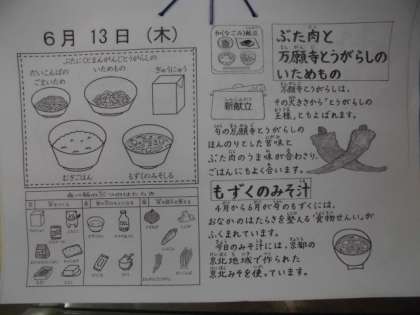 6月 13日 (木)
ぶたにくとまんがんじとうがらしの
いためもの
だいこんばの
ごまいため
ぎゅうにゅう
むぎごはん
もずくのみそしる
和(なごみ)献立
新献立
ぶた肉と
万願寺とうがらしの
いためもの
万願寺とうがらしは、
その大きさから「とうがらしの
王様」ともよばれます。
旬の万願寺とうがらしの
ほんのりとした苦味と
ぶた肉のうま味が合わさり、
ごはんにもよく合います。
もずくのみそ汁
4月から6月が旬のもずくには、
おなかのはたらきを整える「食物せんい」が
ふくまれています。
今日のみそ汁には、京都の
京北地域で作られた
京北みそを使っています。